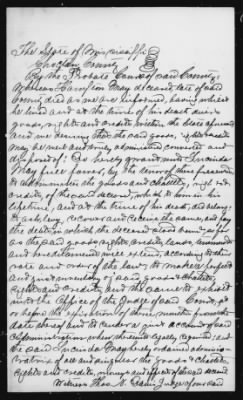 The State of Mississippi
County
By the Probate Court of said County,
Whereas Harrison May deceased late of said
County died as we are informed, having whilst
he lived and at the time of his death divers
goods, rights and credits within the State aforesaid
and we desiring that the said goods, rights and
may be well and truly administered converted and
disposed of: Do hereby grant unto Lucinda
May full power, by the tenor of these presents
to administer the goods and Chattels, rights and
credits of the said deceased, which to him in his
lifetime, and at the time of his death, did belong
to ask, levy, recover and receive the same, and pay
the debts in which the deceased stood bound so far
as the said goods, rights, credits, lands, tenements
and hereditaments will extend, according to their
rate and order of the law; to make a perfect
and Inventory of said goods & Chattels,
rights and credits, and the same to exhibit
into the Office of the Judge of said County, at
or before the expiration of three months from the
date hereof and to render a just account of said
Administration when thereunto legally required; and
the said Lucinda May hereby ordain administra-
tratrix of all and singular the goods & chattels
rights and credits, moneys and effects of the said deceased
Witness Thos. Judge of our said